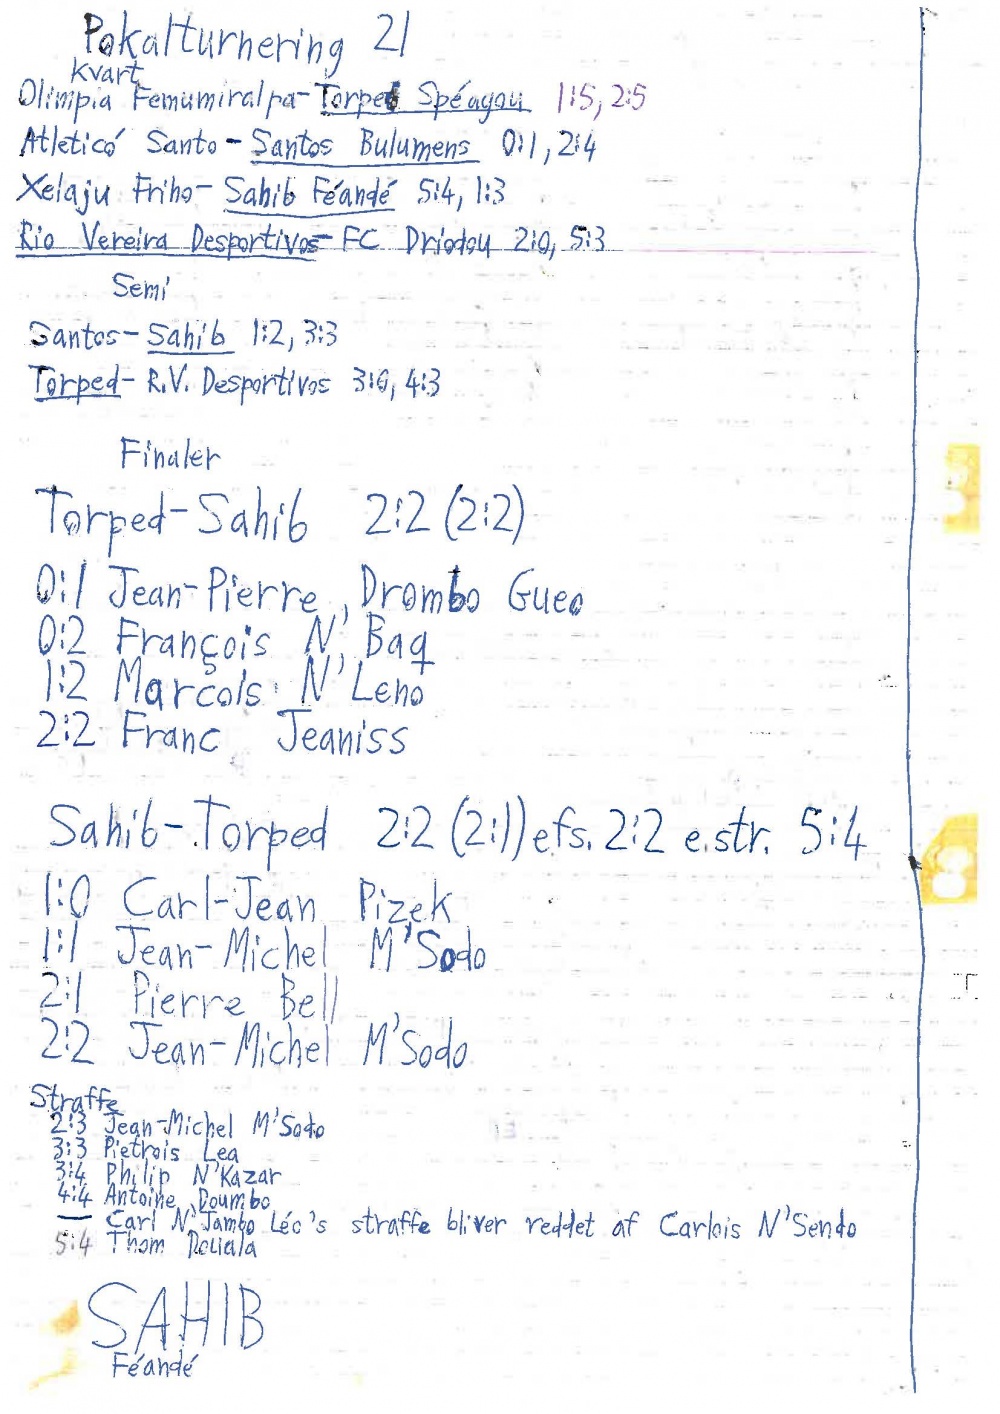 Pokalturnering 21
Kvart
Olimpia Femumiralpa-Torped Spéagou 1:5, 2:5
Atleticó Santo - Santos Bulumens 0:1, 2:4
Xelaju Friho- Sahib Féandé 5:4, 1:3
Rio Vereira Desportivos- FC Driodou 2:0, 5:3
Semi
Santos- Sahib 1:2, 3:3
Torped- R.V. Desportivos 3:0, 4:3
Finaler
Torped-Sahib 2:2 (2:2)
0:1 Jean-Pierre Drombo Gueo
0:2 François N'Baq
1:2 Marcois N'Leno
2:2 Franc Jeaniss
Sahib-Torped 2:2 (2:1) efs. 2:2 e.str. 5:4
1:0 Carl-Jean Pizek
1:1 Jean-Michel M'Sodo
2:1 Pierre Bell
2:2 Jean-Michel M'Sodo
Straffe
2:3 Jean-Michel M'Sodo
3:3 Pietrois Lea
3:4 Philip N'Kazar
4:4 Antoine Doumbo
— Carl N'Jambo Léo's straffe bliver reddet af Carlois N'Sendo
5:4 Thom
SAHIB
Féandé